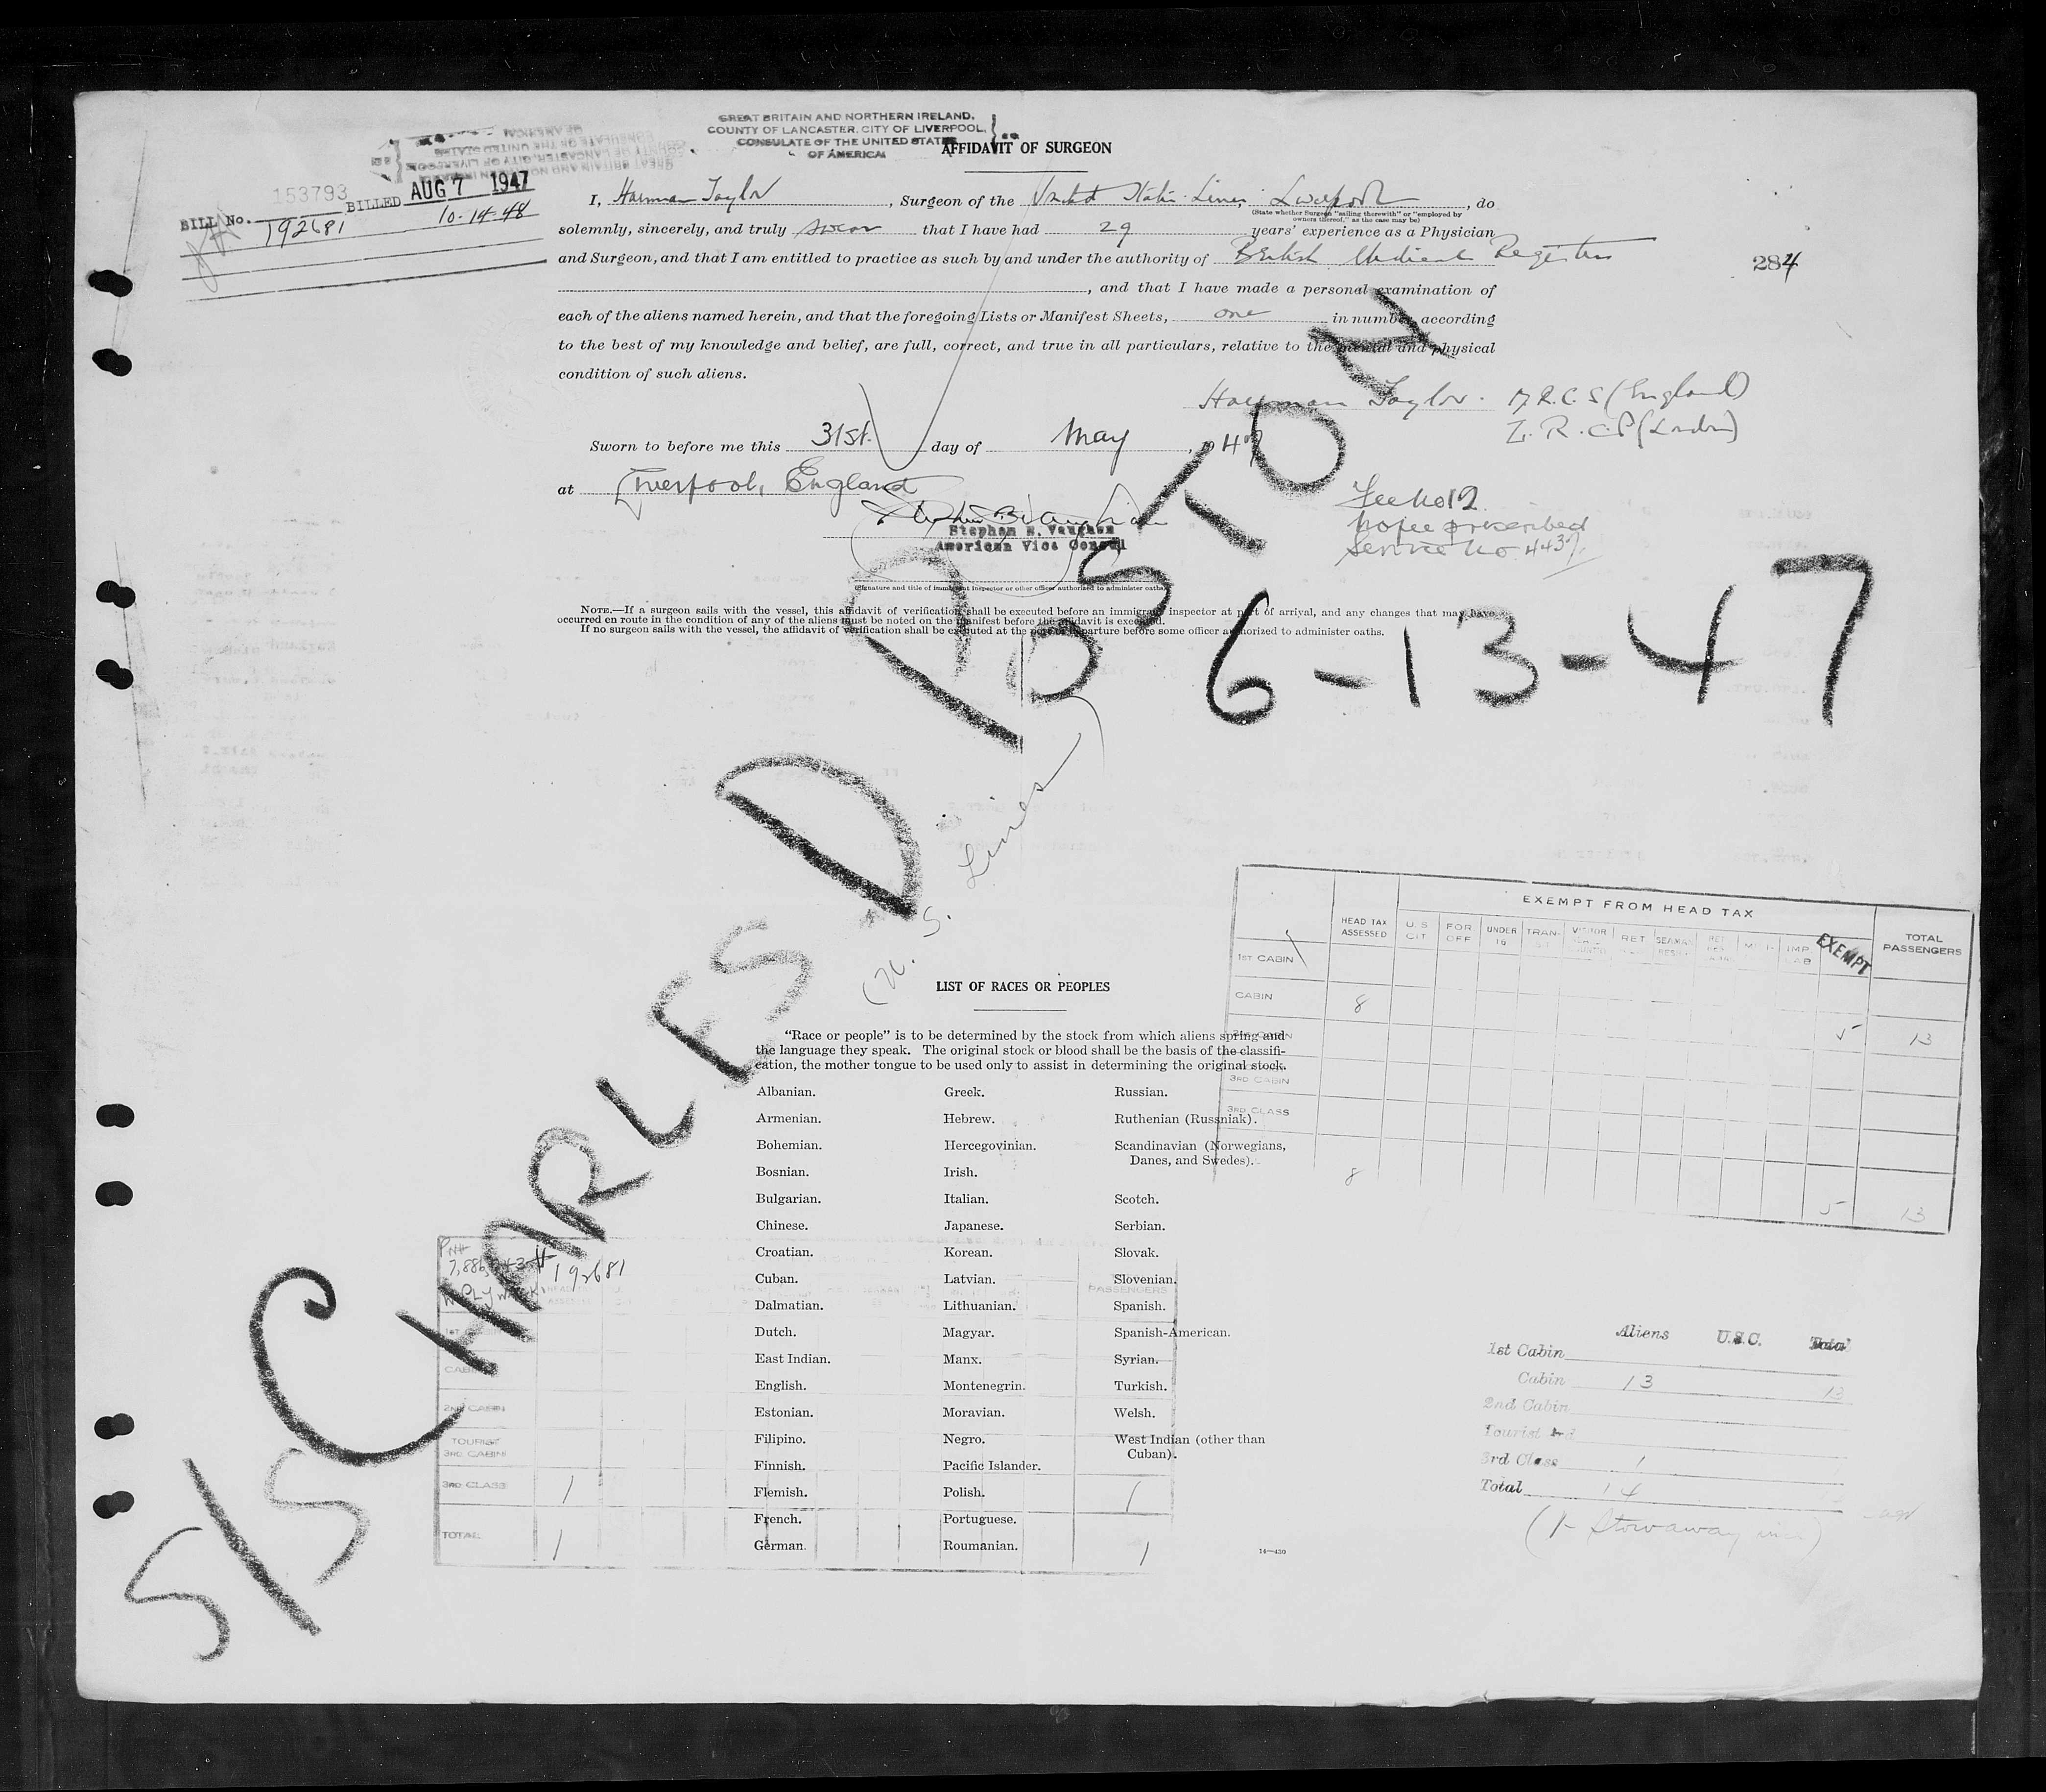 GREAT BRITAIN AND NORTHERN IRELAND,
COUNTY OF LANCASTER, CITY OF LIVERPOOL,
CONSULATE OF THE UNITED STATES
OF AMERICA
AFFIDAVIT OF SURGEON
153793
BILL No. BILLED AUG 7 1947
192681 10-14-48
I, Taylor, Surgeon of the United States Lines Liverpool, do
(State whether Surgeon "sailing therewith" or "employed by
owners thereof," as the case may be)
solemnly, sincerely, and truly swear that I have had 29 years' experience as a Physician
and Surgeon, and that I am entitled to practice as such by and under the authority of British Medical Register
284
, and that I have made a personal examination of
each of the aliens named herein, and that the foregoing Lists or Manifest Sheets, one in number, according
to the best of my knowledge and belief, are full, correct, and true in all particulars, relative to the mental and physical
condition of such aliens.
Taylor. M.R.C.S (England)
L.R.C.P (London)
Sworn to before me this 31st day of May, 1947
at Liverpool, England
Stephen B. Vaughan
Stephen B. Vaughan
American Vice Consul
Fee No 12
No fee prescribed
Service No 4437
(Signature and title of immigrant inspector or other officer authorized to administer oaths)
NOTE.—If a surgeon sails with the vessel, this affidavit of verification shall be executed before an immigrant inspector at port of arrival, and any changes that may have
occurred en route in the condition of any of the aliens must be noted on the manifest before the affidavit is executed.
If no surgeon sails with the vessel, the affidavit of verification shall be executed at the port of departure before some officer authorized to administer oaths.
S/S CHARLES D
BOSTON
6-13-47
(U. S. Lines)
EXEMPT FROM HEAD TAX
HEAD TAX ASSESSED U S CIT FOR OFF UNDER 16 TRAN- RET SEAMAN IMP LAB EXEMPT TOTAL PASSENGERS
1ST CABIN
CABIN 8 5 13
2ND CABIN
3RD CABIN
3RD CLASS
8 5 13
LIST OF RACES OR PEOPLES
"Race or people" is to be determined by the stock from which aliens spring and
the language they speak. The original stock or blood shall be the basis of the classifi-
cation, the mother tongue to be used only to assist in determining the original stock.
Albanian. Greek. Russian.
Armenian. Hebrew. Ruthenian (Russniak).
Bohemian. Hercegovinian. Scandinavian (Norwegians,
Danes, and Swedes).
Bosnian. Irish.
Bulgarian. Italian. Scotch.
Chinese. Japanese. Serbian.
Croatian. Korean. Slovak.
Cuban. Latvian. Slovenian.
Dalmatian. Lithuanian. Spanish.
Dutch. Magyar. Spanish-American.
East Indian. Manx. Syrian.
English. Montenegrin. Turkish.
Estonian. Moravian. Welsh.
Filipino. Negro. West Indian (other than
Cuban).
Finnish. Pacific Islander.
Flemish. Polish.
French. Portuguese.
German. Roumanian.
14—430
192681
PASSENGERS
1ST
CABIN
2ND CABIN
TOURIST
3RD CABIN
3RD CLASS 1 1
TOTAL 1 1
Aliens U.S.C. Total
1st Cabin
Cabin 13 13
2nd Cabin
Tourist
3rd Class 1
Total 14
(1- Stowaway